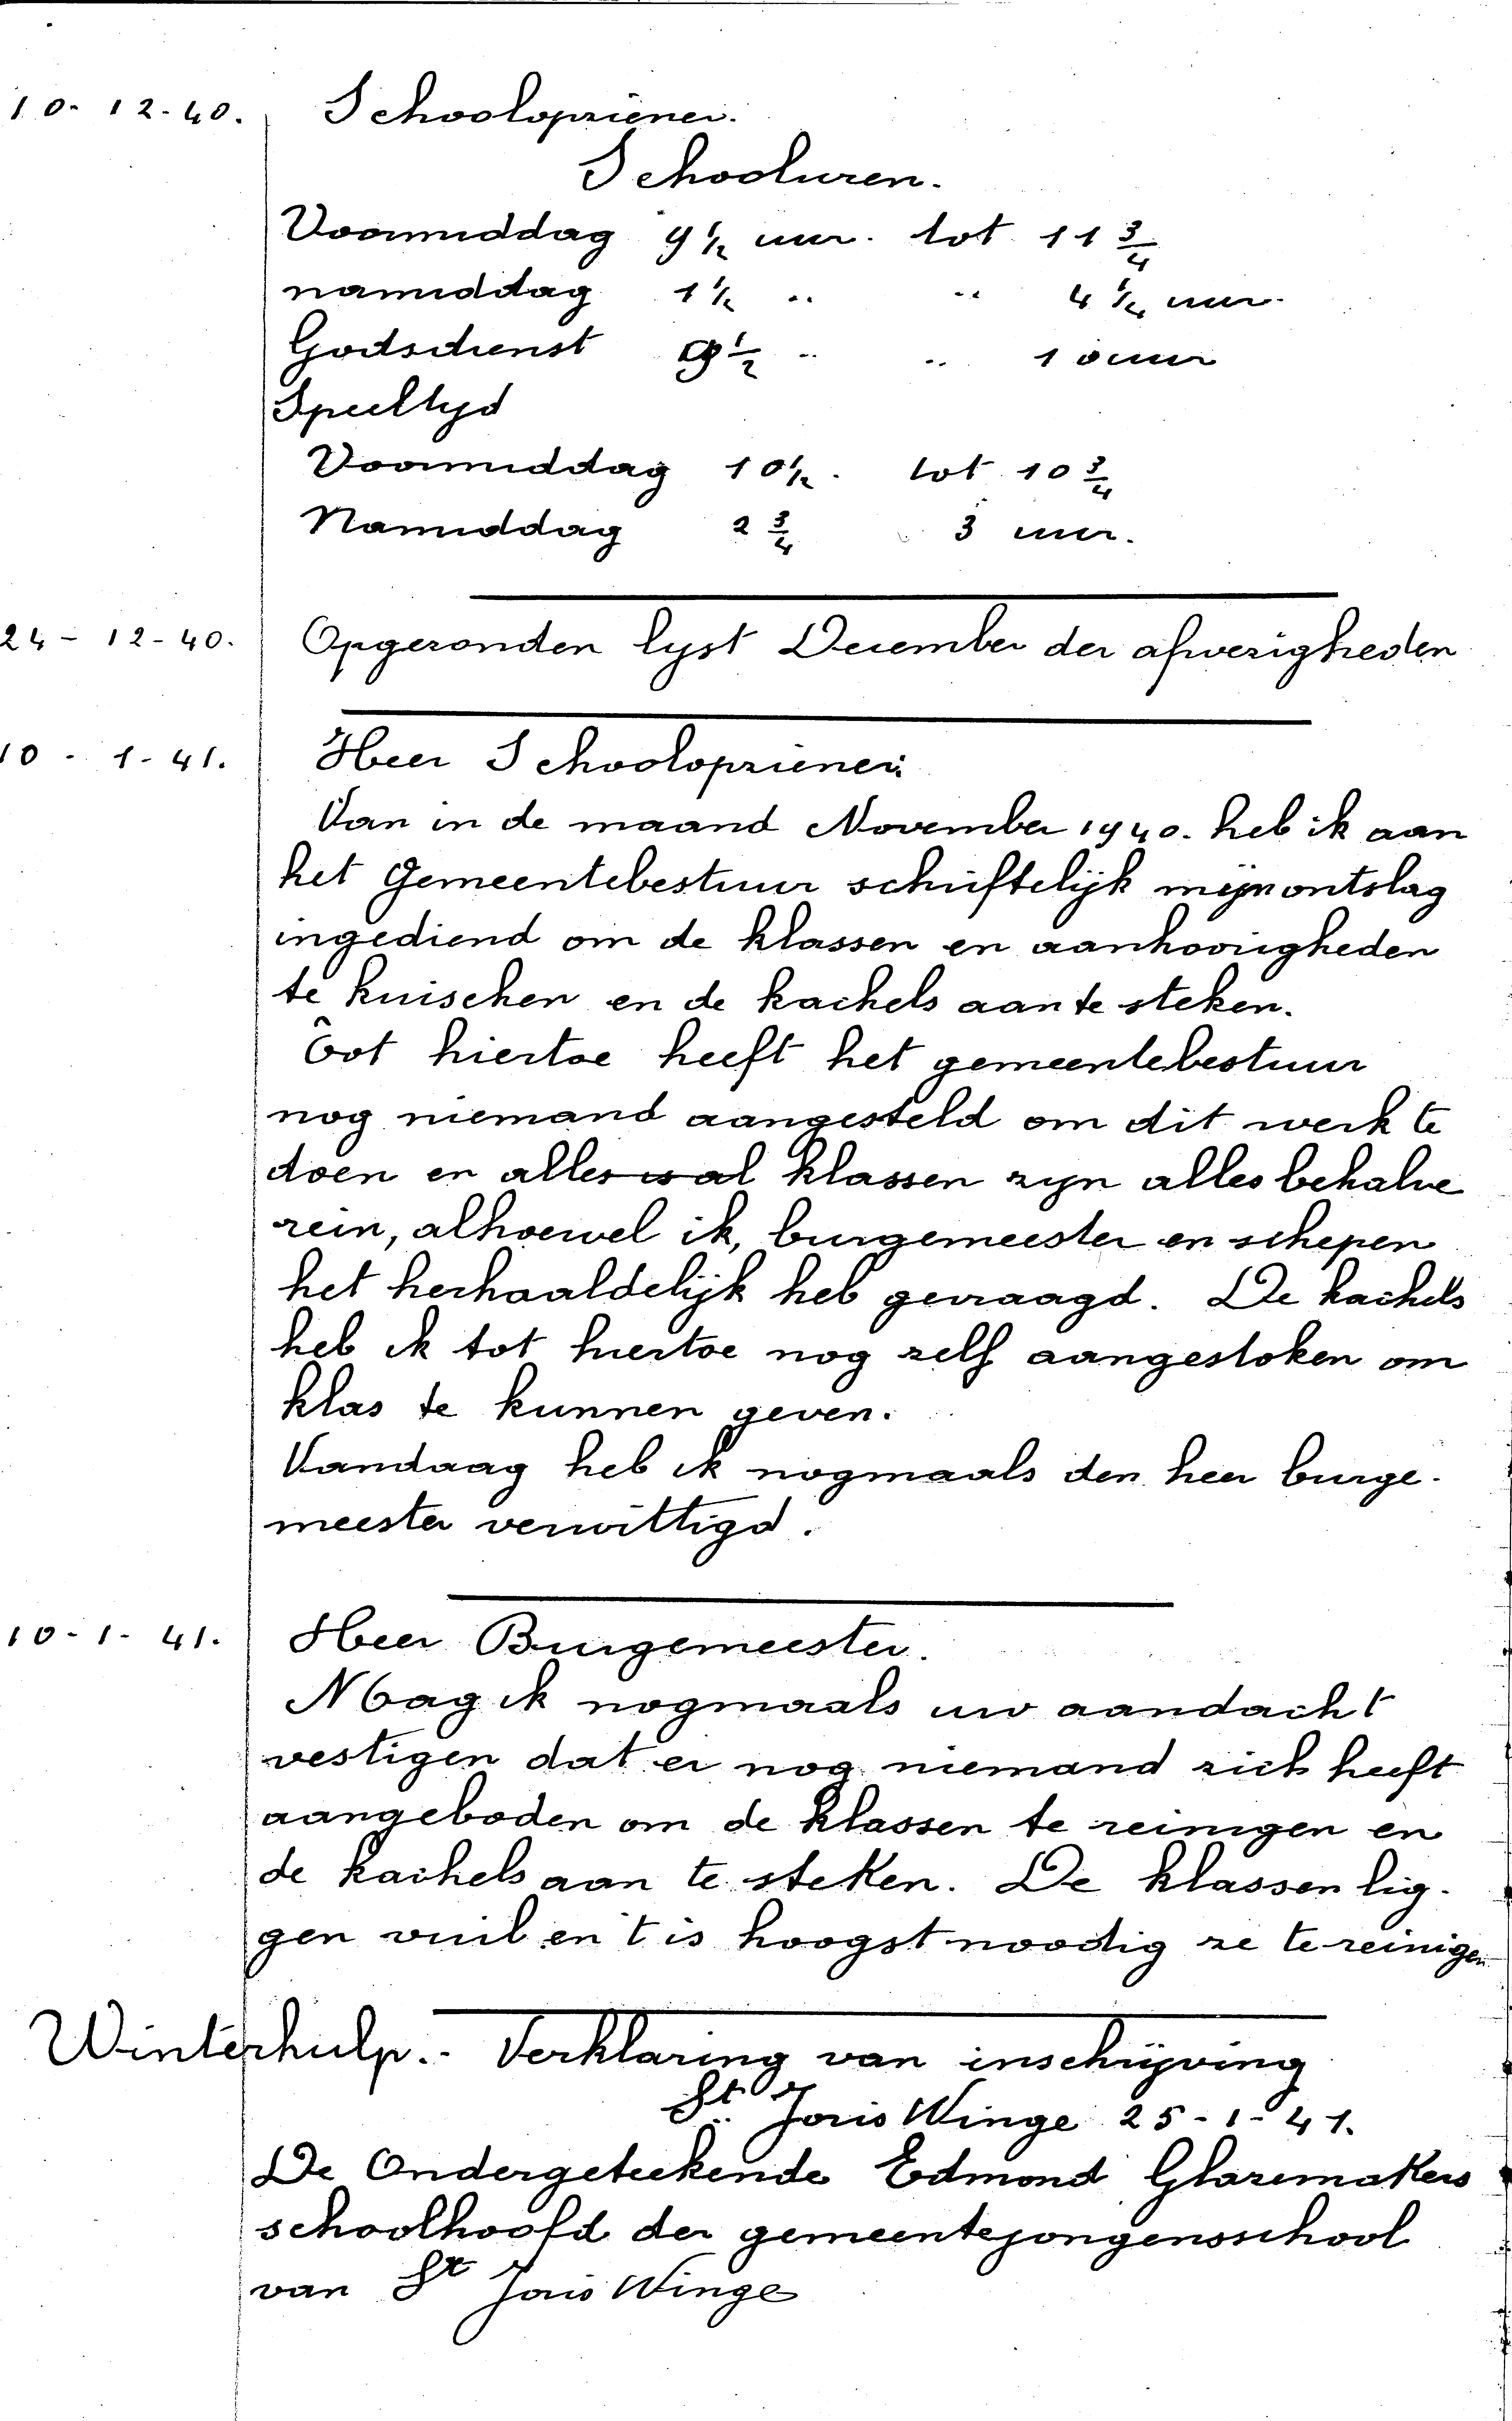 10-12-40. Schoolopziener.
Schooluren.
Voormiddag 9 1/2 uur. tot 11 3/4
namiddag 1 1/2 " " 4 1/4 uur.
Godsdienst 9 1/2 " " 10 uur
Speeltyd
Voormiddag 10 1/2. tot 10 3/4
Namiddag 2 3/4 3 uur.
24-12-40. Opgezonden lyst December der afwezigheden
10-1-41. Heer Schoolopziener.
Van in de maand November 1940. heb ik aan
het Gemeentebestuur schriftelijk mijn ontslag
ingediend om de klassen en aanhoorigheden
te kuischen en de kachels aan te steken.
Tot hiertoe heeft het gemeentebestuur
nog niemand aangesteld om dit werk te
doen en alles is al klassen zyn alles behalve
rein, alhoewel ik, burgemeester en schepen
het herhaaldelijk heb gevraagd. De kachels
heb ik tot hiertoe nog zelf aangestoken om
klas te kunnen geven.
Vandaag heb ik nogmaals den heer burge-
meester verwittigd.
10-1-41. Heer Burgemeester.
Mag ik nogmaals uw aandacht
vestigen dat er nog niemand zich heeft
aangeboden om de klassen te reinigen en
de kachels aan te steken. De klassen lig-
gen vuil en 't is hoogst noodig ze te reinigen
Winterhulp.- Verklaring van inschrijving
St Joris Winge 25-1-41.
De Ondergeteekende Edmond Glazemakers
schoolhoofd der gemeentejongensschool
van St Joris Winge